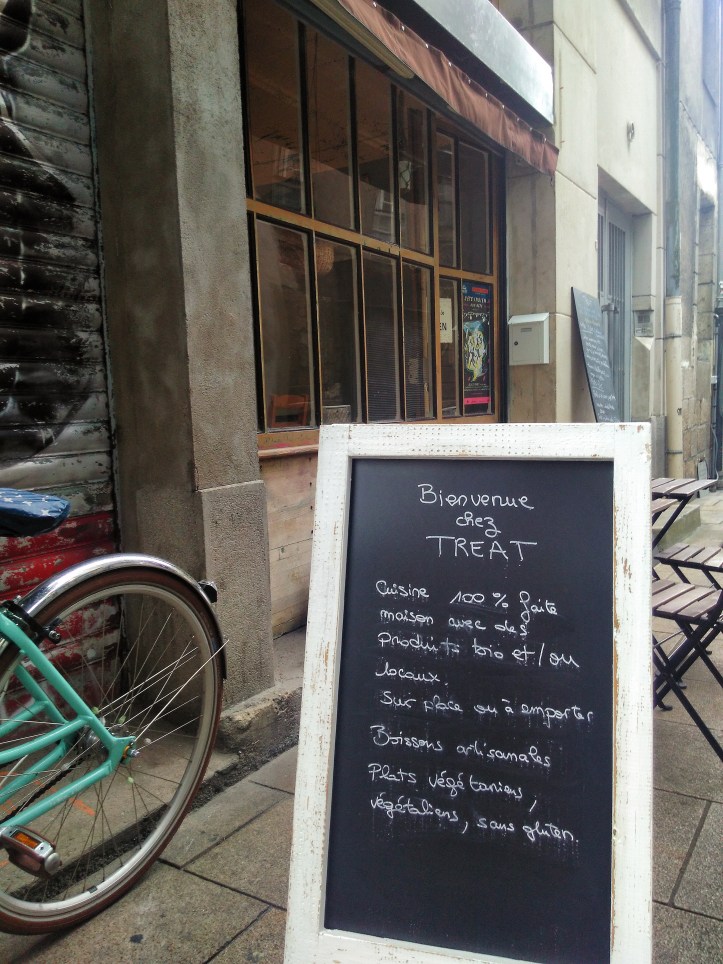 Bienvenue
chez
TREAT
Cuisine 100% faite
maison avec des
Produits bio et/ou
locaux.
Sur place ou à emporter
Boissons artisanales
Plats végétariens,
végétaliens, sans gluten.